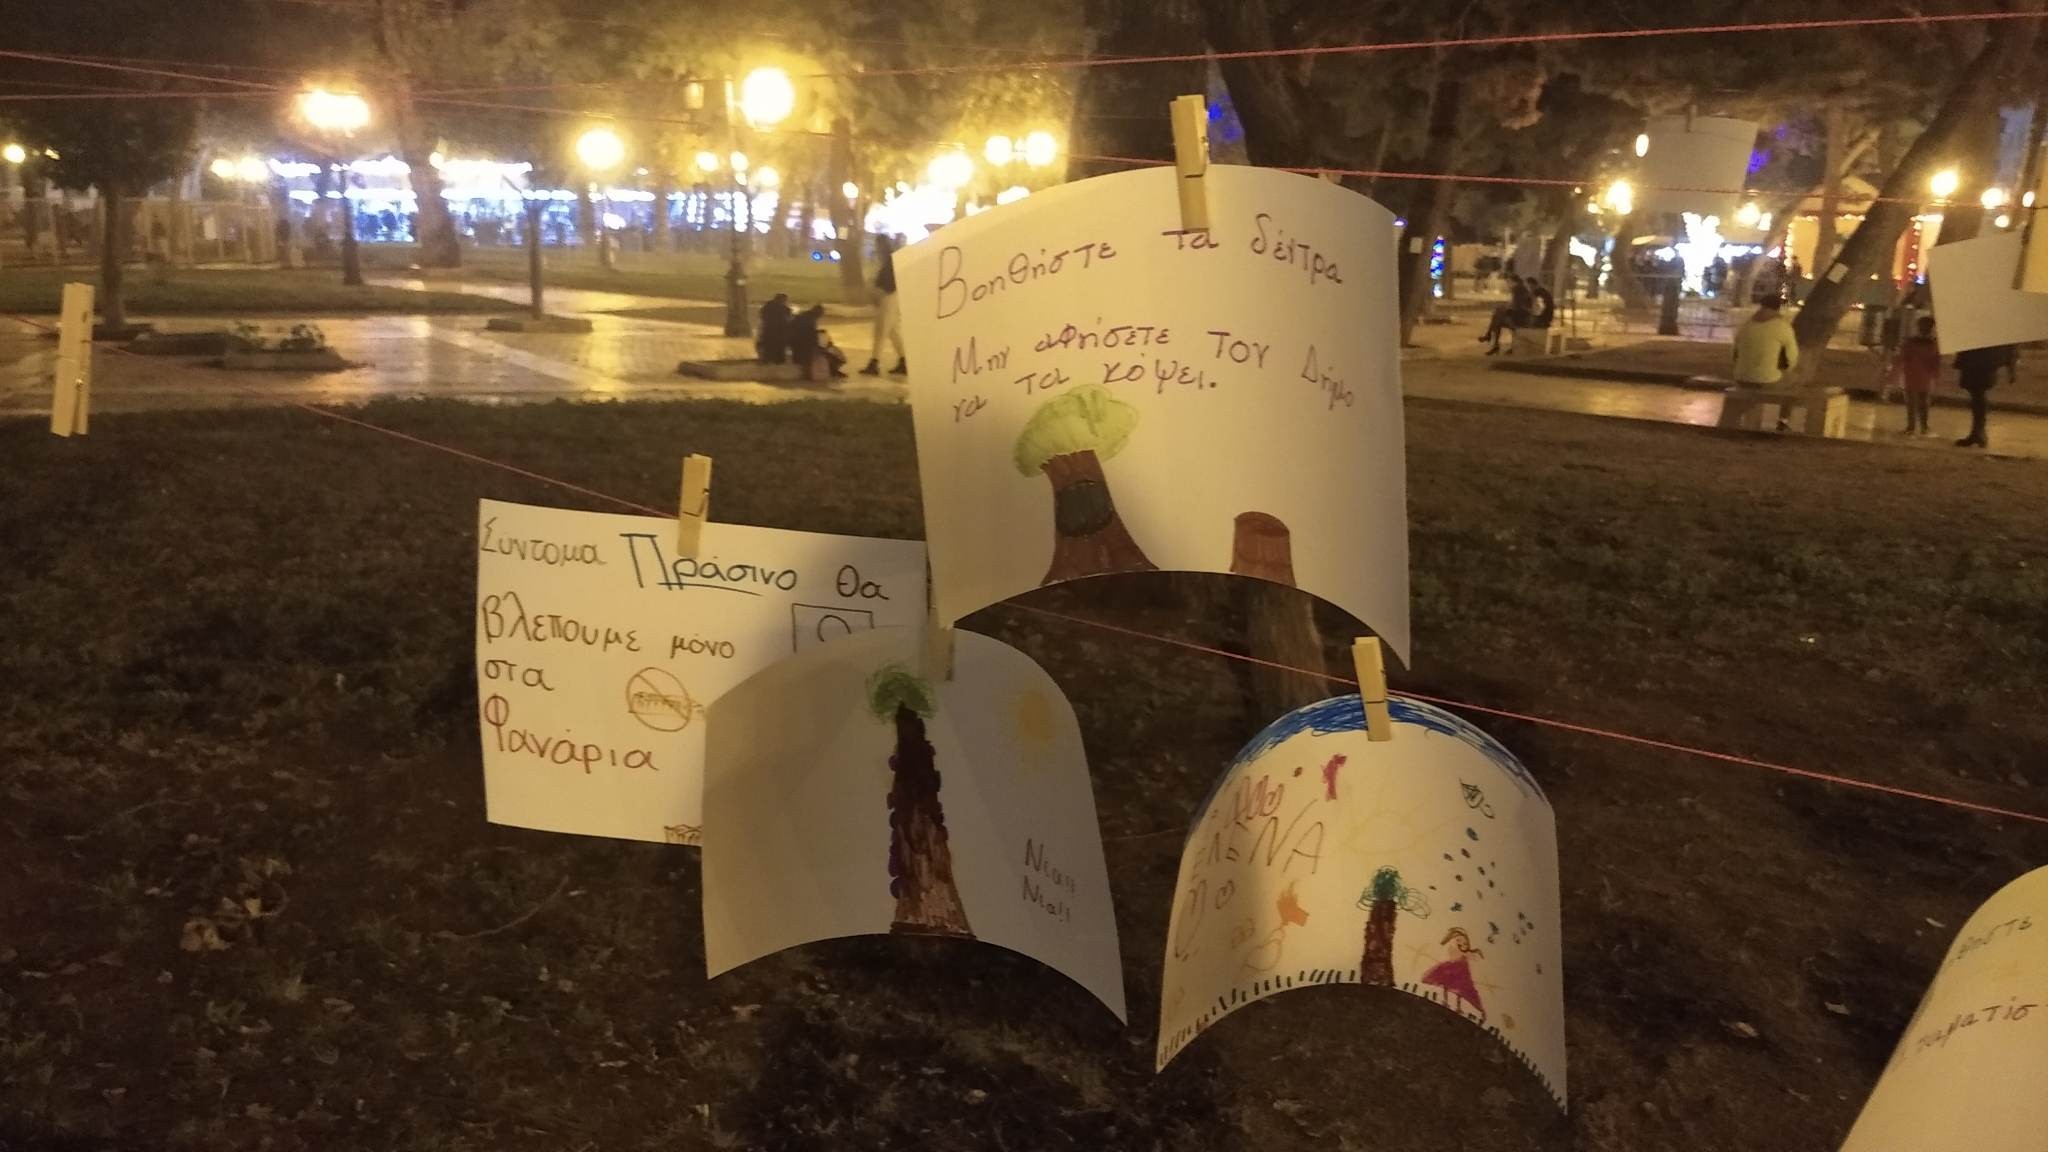 Βοηθήστε τα δέντρα
Μην αφήσετε τον Δήμο
να τα κόψει.
Συντομα Πράσινο θα
βλεπουμε μόνο
στα
Φανάρια
Νια!!
Νια!!
ΕΛΕΝΑ